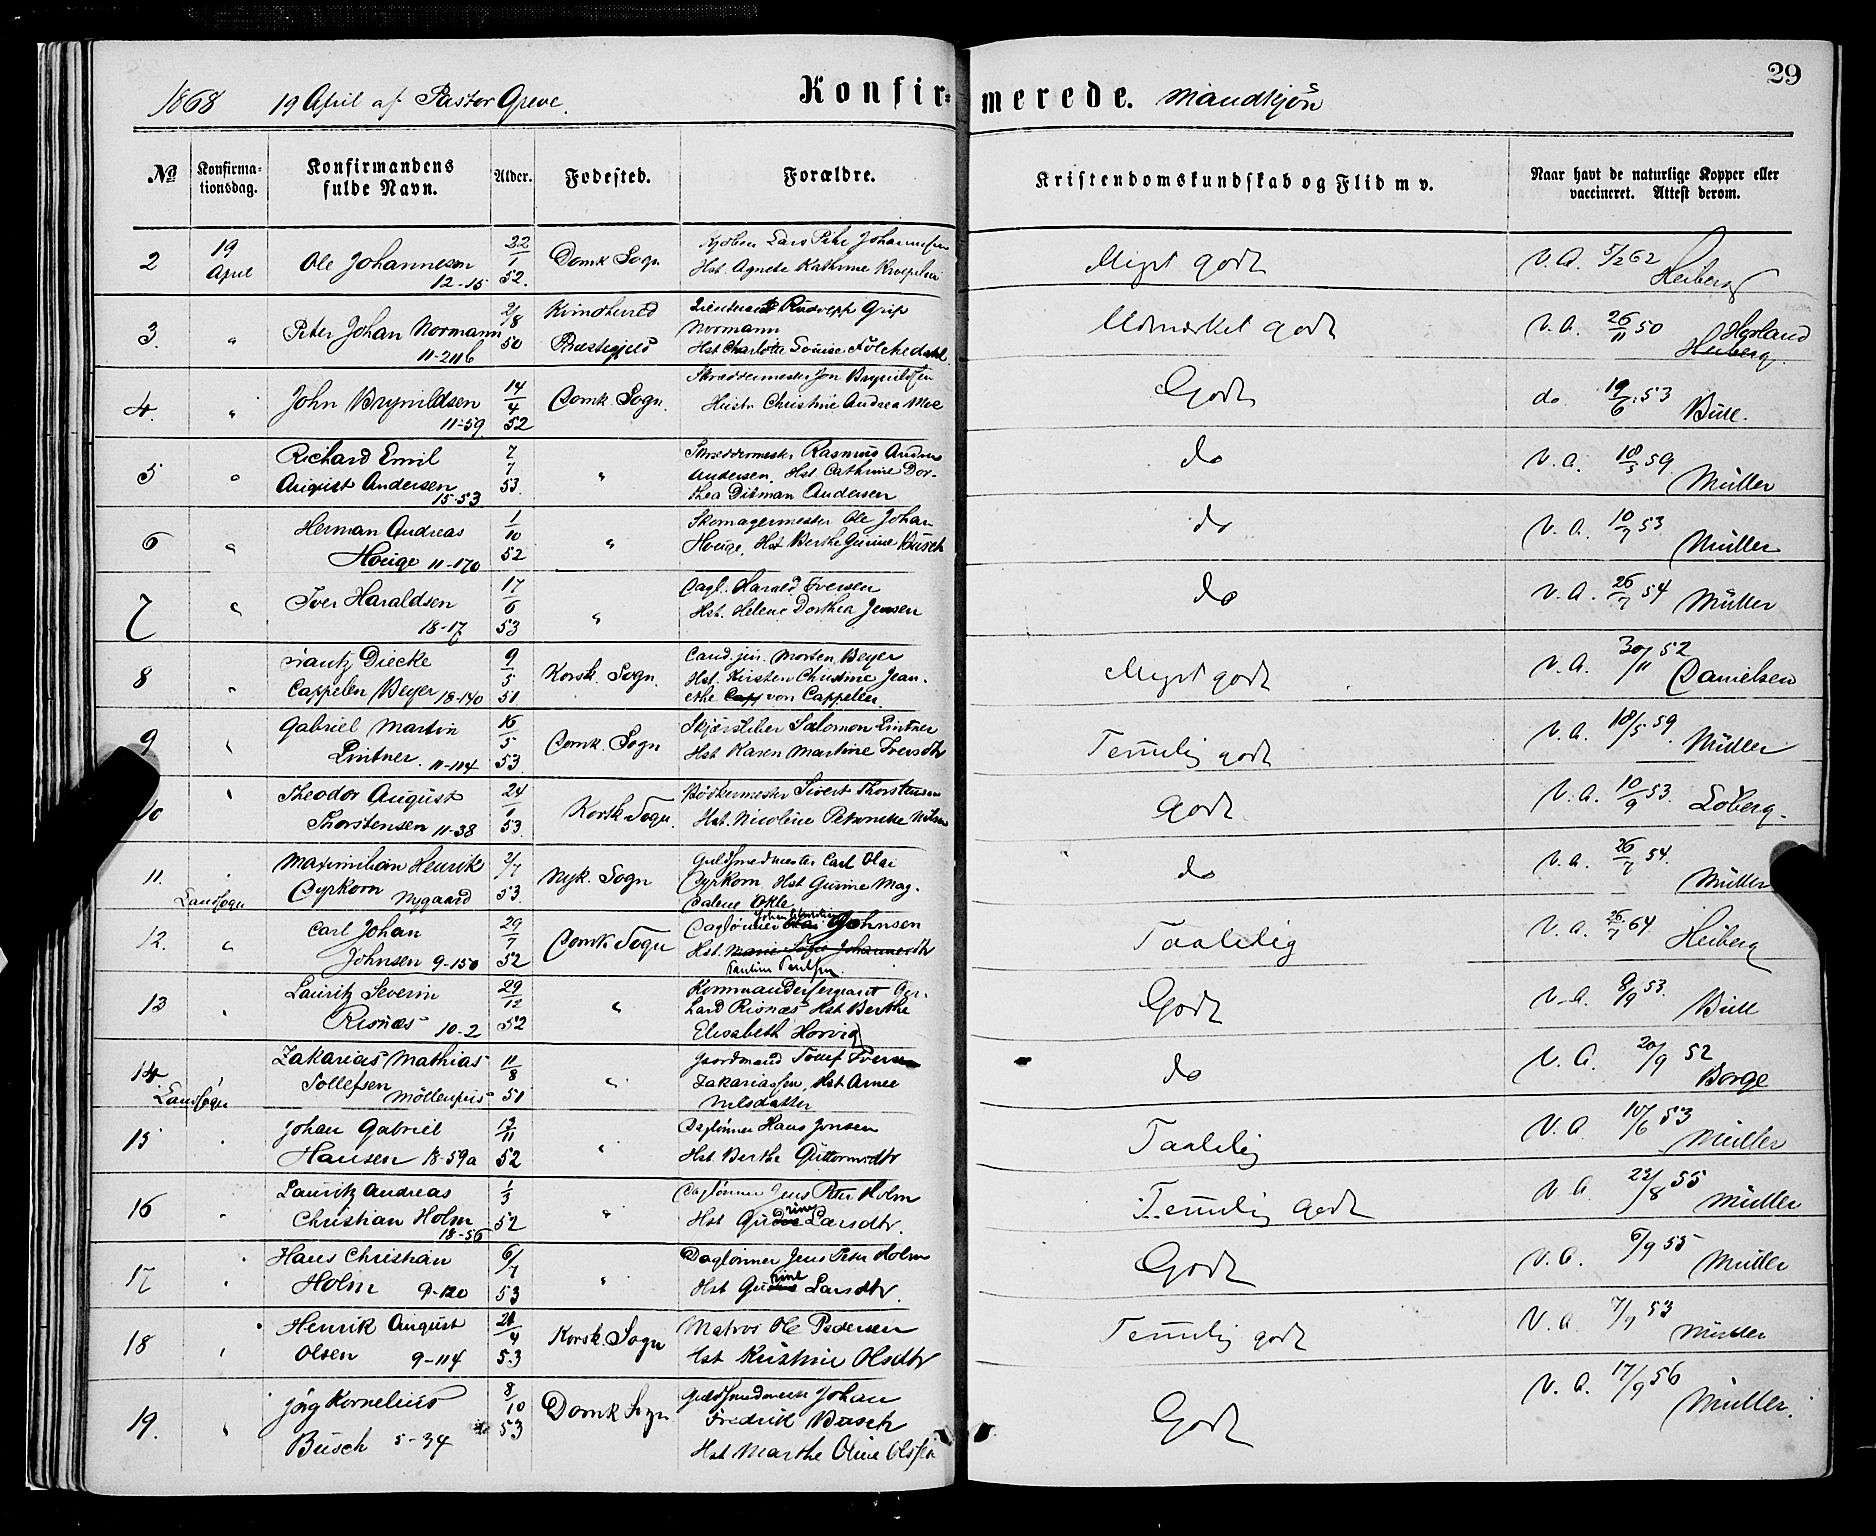 29
1868 19 April af Pastor Greve. Konfirmerede. Mandkjön
No Konfirmationsdag. Konfirmandens fulde Navn. Alder. Fødested. Forældre. Kristendomskundskab og Flid m v. Naar havt de naturlige Kopper eller vaccineret. Attest derom.
2 19 April Ole Johannesen 12-15 22/1 52. Domk Sogn Lars Peter Johannesen
Hst. Agnete Kathrine
Meget godt V.A. 5/2 62 Heiberg
3. " Peter Johan Normann 11-211b 2/8 50 Kvindherred Præstegjeld Lieutenant Rudolph Grip
Normann
Hst Charlotte Louise Fölchedahl
Udmærket godt V.A. 26/11 50 Hysland Heiberg
4. " John Brynildsen 11-59 14/4 52 Domk. Sogn. Skræddermester Jon Brynildsen
Hustr Christine Andrea Moe
Godt do 19/6 53 Bull.
5 " Richard Emil
August Andersen 15-53 7/7 53. " Skræddermestr Rasmus Andreas
Andersen. Hst Cathrine Dor-
thea Ditman Andersen
do V.A. 18/5 59. Müller
6 " Herman Andreas
Houge 11-170 1/10 52 " Skomagermester Ole Johan
Houge, Hst Berthe Gurine Busch
do V.A. 10/7 53. Müller
7 " Iver Haraldsen
18-17 17/6 53 " Dagl. Harald Iversen
Hst. Helene Dorthea Jensen
do V.A. 26/7 54 Müller
8 " Frantz Diecke
Cappelen Beyer 18-140 9/5 51 Korsk. Sogn. Cand. jur. Morten Beyer
Hst. Kirsten Christine Jean-
ethe Capp von Cappelen
Meget godt V.A. 30/11 52 Danielsen
9 " Gabriel Martin
Lintner. 11-114 16/5 53. Domk. Sogn Skjærsliber Salomon Lintner
Hst Karen Martine Iversdtr
Temlig godt V.A. 18/5 59. Müller
10 " Theodor August
Thorstensen 11-38 24/1 53. Korsk Sogn. Bödkermester Sivert Thorstensen
Hst. Nicoline Petronelle Nilsen
Godt V.A. 10/9 53. Löberg.
11. Landsogn Maximilian Henrik
Dyrkorn Nygaard 2/7 53. Nyk. Sogn Guldsmedmester Carl Olai
Dyrkorn Hst Gurine Mag-
dalene Okle
do V.A. 26/7 54. Müller
12. " Carl Johan
Johnsen 9-150 29/7 52 Domk Sogn Daglønner Johnsen
Hst. Marie Sofie Johannesdtr
Pauline Paulsen.
Taalelig V.A. 26/7 64 Heiberg
13 " Lauritz Severin
Risnæs 10-2 29/12 52 " Kommandersergeant Ger-
hard Risnæs Hst Berthe
Elisabeth Horvig
Godt V.A. 8/9 53. Bull
14 Landsogn Zakarias Mathias
Tollefsen Möllenpris 11/8 51 " Gaardmand Tollef
Zakariassen, Hst Arnee
Nilsdatter
do V.A. 20/9 52 Borge
15 " Johan Gabriel
Hansen 18-59a 13/11 52 " Daglönner Hans Jonsen
Hst Berthe Guttormsdtr
Taalelig V.A. 10/6 53 Müller
16 " Lauritz Andreas
Christian Holm
18-56 1/3 52 " Daglönner Jens Peter Holm
Hst Gurine Larsdtr.
Temlig Godt V.A. 22/8 55 Müller
17 " Hans Christian
Holm 9-120 6/7 53 " Daglønner Jens Peter Holm
Hst Gurine Larsdtr.
Godt V.A. 6/9 55 Müller
18 " Henrik August
Olsen 9-114 21/4 53 Korsk. Sogn Matros Ole Pedersen
Hst Kristine Olsdtr
Temlig godt V.A. 7/7 53 Müller
19. " Jörg Kornelius
Busch 5-34 8/10 53 Domk Sogn Guldsmedmester Johan
Fredrik Busch
Hst Marthe Oline Olsen
Godt V.A. 17/9 56 Müller.